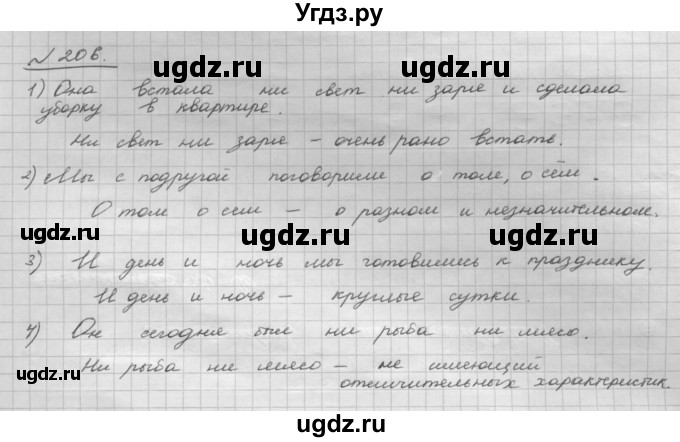 Угдз.ру
№ 206.
1) Она встала ни свет ни заря и сделала
уборку в квартире.
Ни свет ни заря – очень рано встать.
2) Мы с подругой поговорили о том, о сём.
О том о сем – о разном и незначительном.
3) И день и ночь мы готовились к празднику.
И день и ночь – круглые сутки.
4) Он сегодня был ни рыба ни мясо.
Ни рыба ни мясо – не имеющий
отличительных характеристик.
ugdz.ru ugdz.ru ugdz.ru
ugdz.ru ugdz.ru ugdz.ru
ugdz.ru ugdz.ru
ugdz.ru